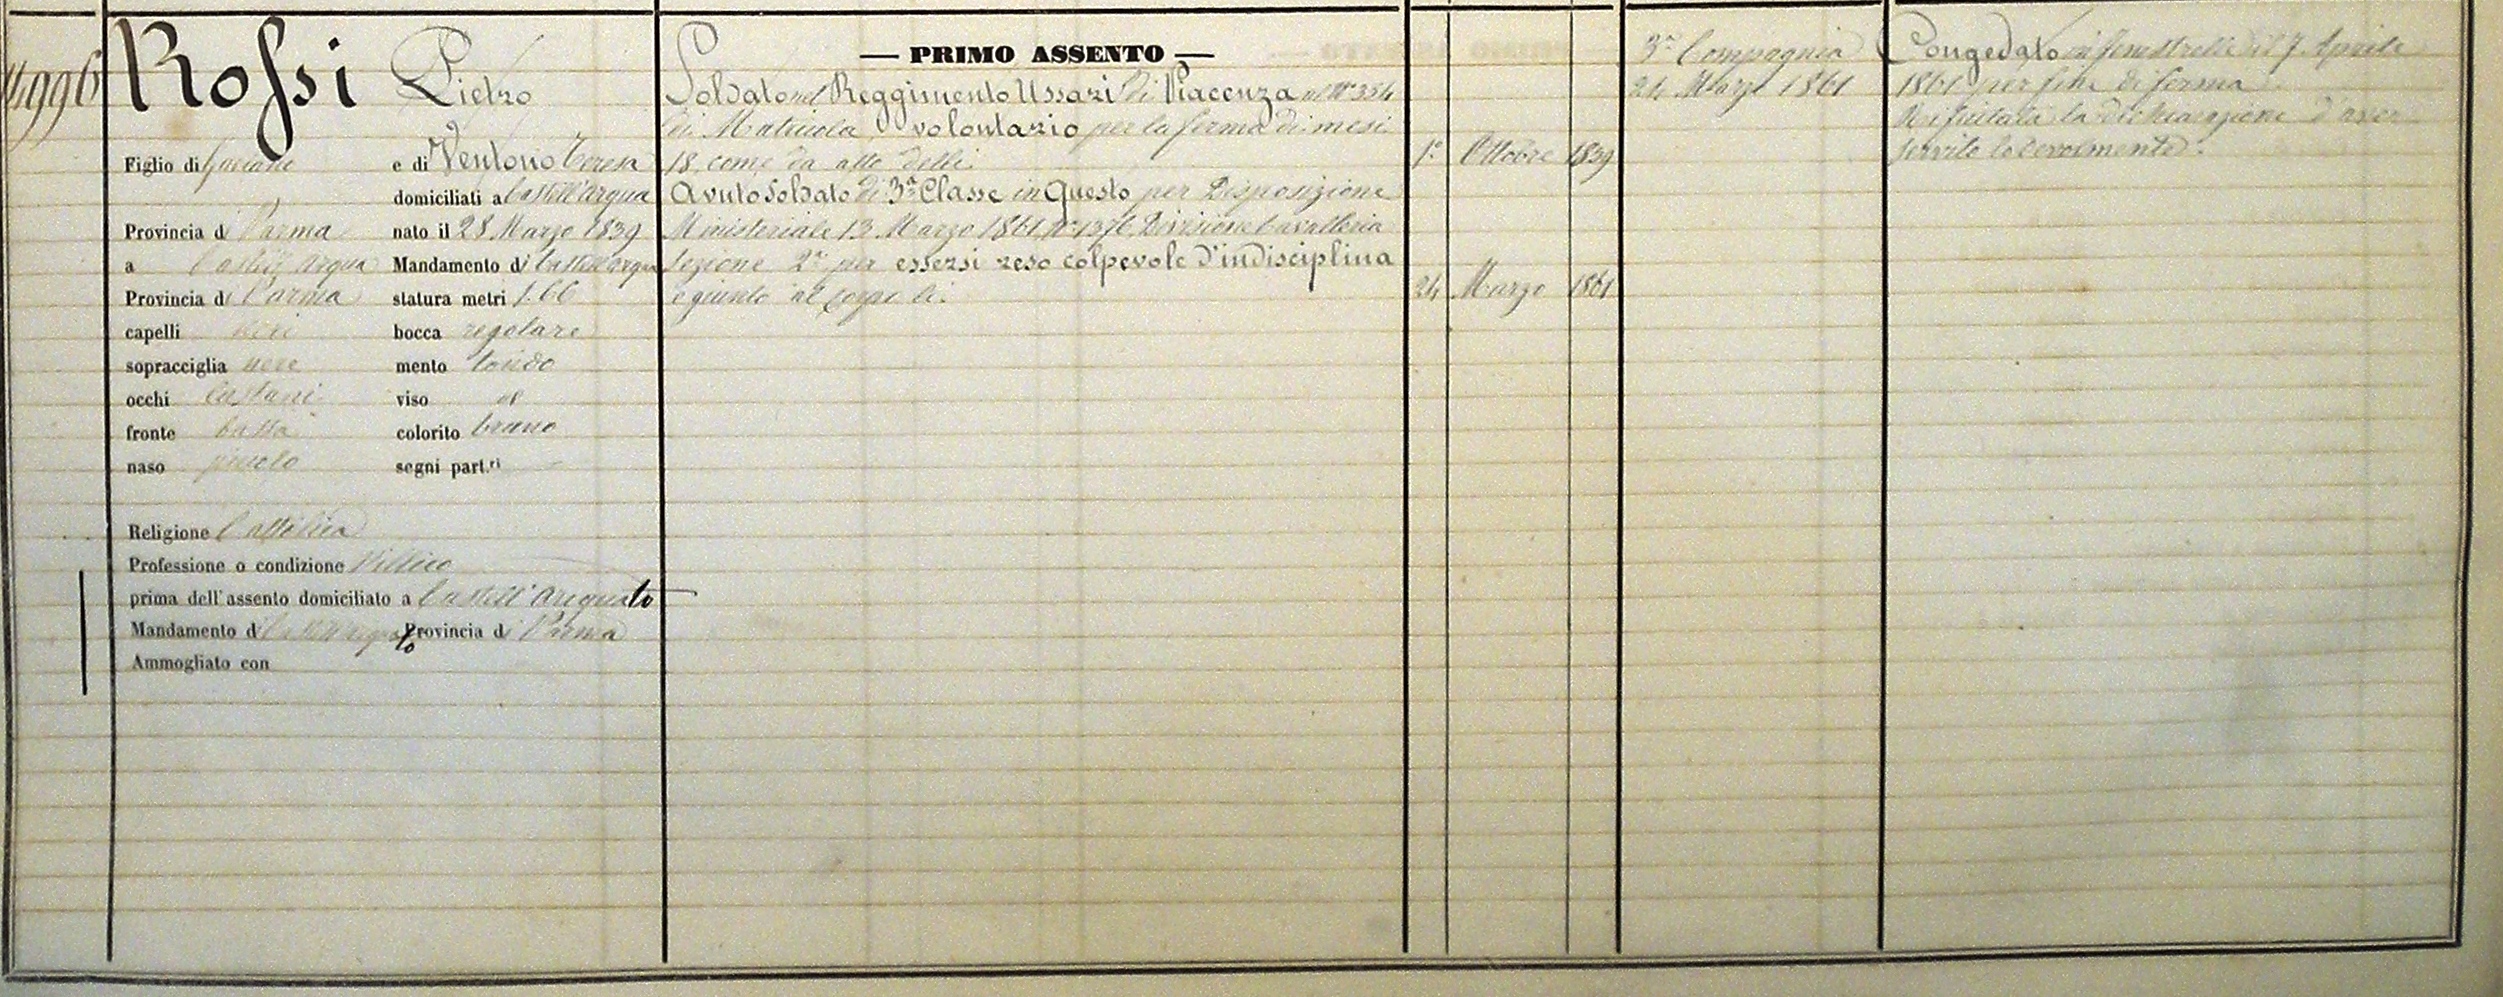 14996
Rossi Pietro
Figlio di e di Ventorio Teresa
domiciliati a Castell'arqua
Provincia di Parma nato il 28 Marzo 1839
a Castell'arqua Mandamento di Castell'arqua
Provincia di Parma statura metri 1.66
capelli neri bocca regolare
sopracciglia nere mento tondo
occhi castani viso
fronte bassa colorito bruno
naso piccolo segni part.ri
Religione Cattolica
Professione o condizione Villico
prima dell'assento domiciliato a Castell'arquato
Mandamento di Castell'arquato Provincia di Parma
Ammogliato con
— PRIMO ASSENTO —
Soldato nel Reggimento Ussari di Piacenza al N° 354
di Matricola volontario per la ferma di mesi
18 come da atto delli 1° Ottobre 1859
Avuto Soldato di 3ª Classe in Questo per Disposizione
Ministeriale 13 Marzo 1861 N° 1376 Divisione Cavalleria
Sezione 2ª per essersi reso colpevole d'indisciplina
e giunto al corpo li 24 Marzo 1861
3ª Compagnia
24 Marzo 1861
Congedato in Fenestrelle il 7 Aprile
1861 per fine di ferma
Rifiutata la dichiarazione d'aver
servito lodevolmente.